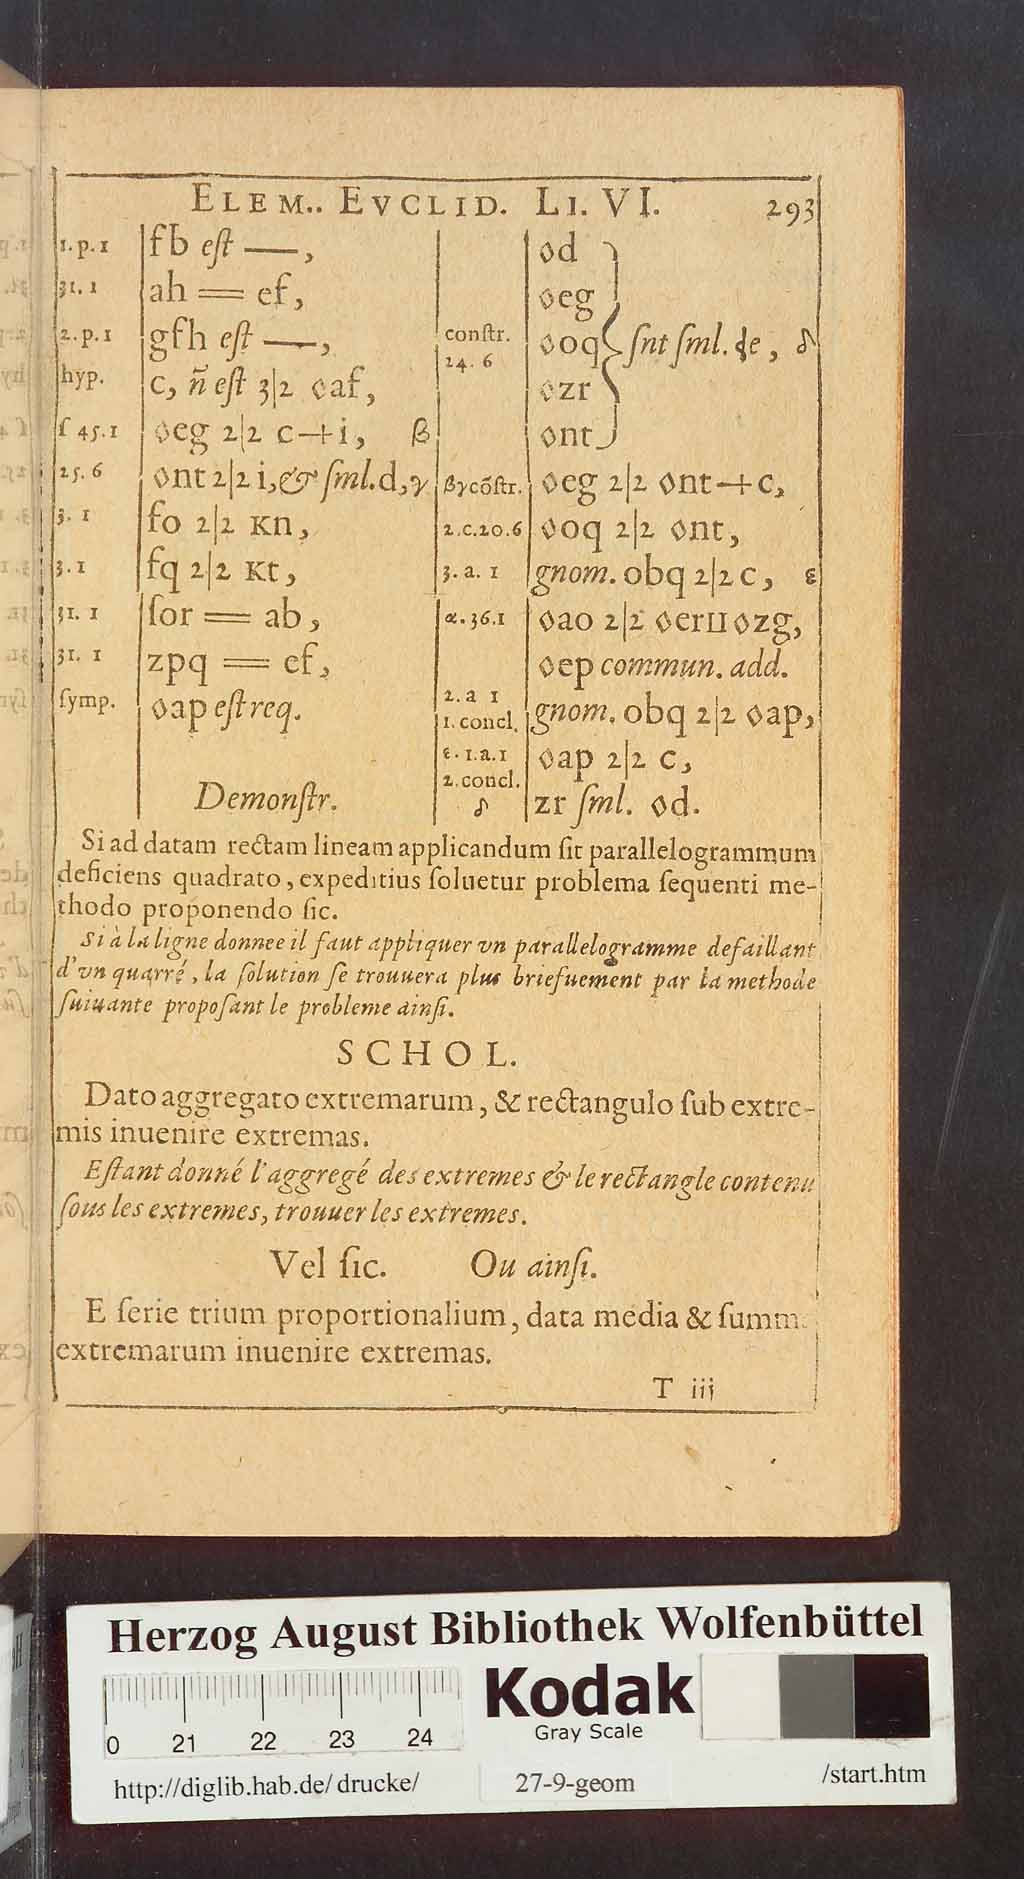 ELEM.. EVCLID. LI. VI. 293
1. p. 1 fb eſt —,
31. 1 ah == ef,
2. p. 1 gfh eſt —,
hyp. c, ñ eſt 3|2 ◊af,
ſ 45. 1 ◊eg 2|2 c+i, β
25. 6 ◊nt 2|2 i, & ſml. d, γ
3. 1 fo 2|2 Kn,
3. 1 fq 2|2 Kt,
31. 1 ſor == ab,
31. 1 zpq == ef,
ſymp. ◊ap eſt req.
Demonſtr.
◊d
◊eg
conſtr. ◊oq ſnt ſml. ◊e, δ
24. 6
◊zr
◊nt
βγ cõſtr. ◊eg 2|2 ◊nt+c,
2. c. 20. 6 ◊oq 2|2 ◊nt,
3. a. 1 gnom. obq 2|2 c, ε
α. 36. 1 ◊ao 2|2 ◊er ⊔ ◊zg,
◊ep commun. add.
2. a 1
1. concl. gnom. obq 2|2 ◊ap,
ε. 1. a. 1 ◊ap 2|2 c,
2. concl.
δ zr ſml. ◊d.
Si ad datam rectam lineam applicandum ſit parallelogrammum
deficiens quadrato, expeditius ſoluetur problema ſequenti me-
thodo proponendo ſic.
Si à la ligne donnee il faut appliquer vn parallelogramme defaillant
d'vn quarré, la ſolution ſe trouuera plus briefuement par la methode
ſuiuante propoſant le probleme ainſi.
SCHOL.
Dato aggregato extremarum, & rectangulo ſub extre-
mis inuenire extremas.
Eſtant donné l'aggregé des extremes & le rectangle contenu
ſous les extremes, trouuer les extremes.
Vel ſic. Ou ainſi.
E ſerie trium proportionalium, data media & ſumm
extremarum inuenire extremas.
T iij
Herzog August Bibliothek Wolfenbüttel
0 21 22 23 24
Kodak
Gray Scale
http://diglib.hab.de/drucke/ 27-9-geom /start.htm